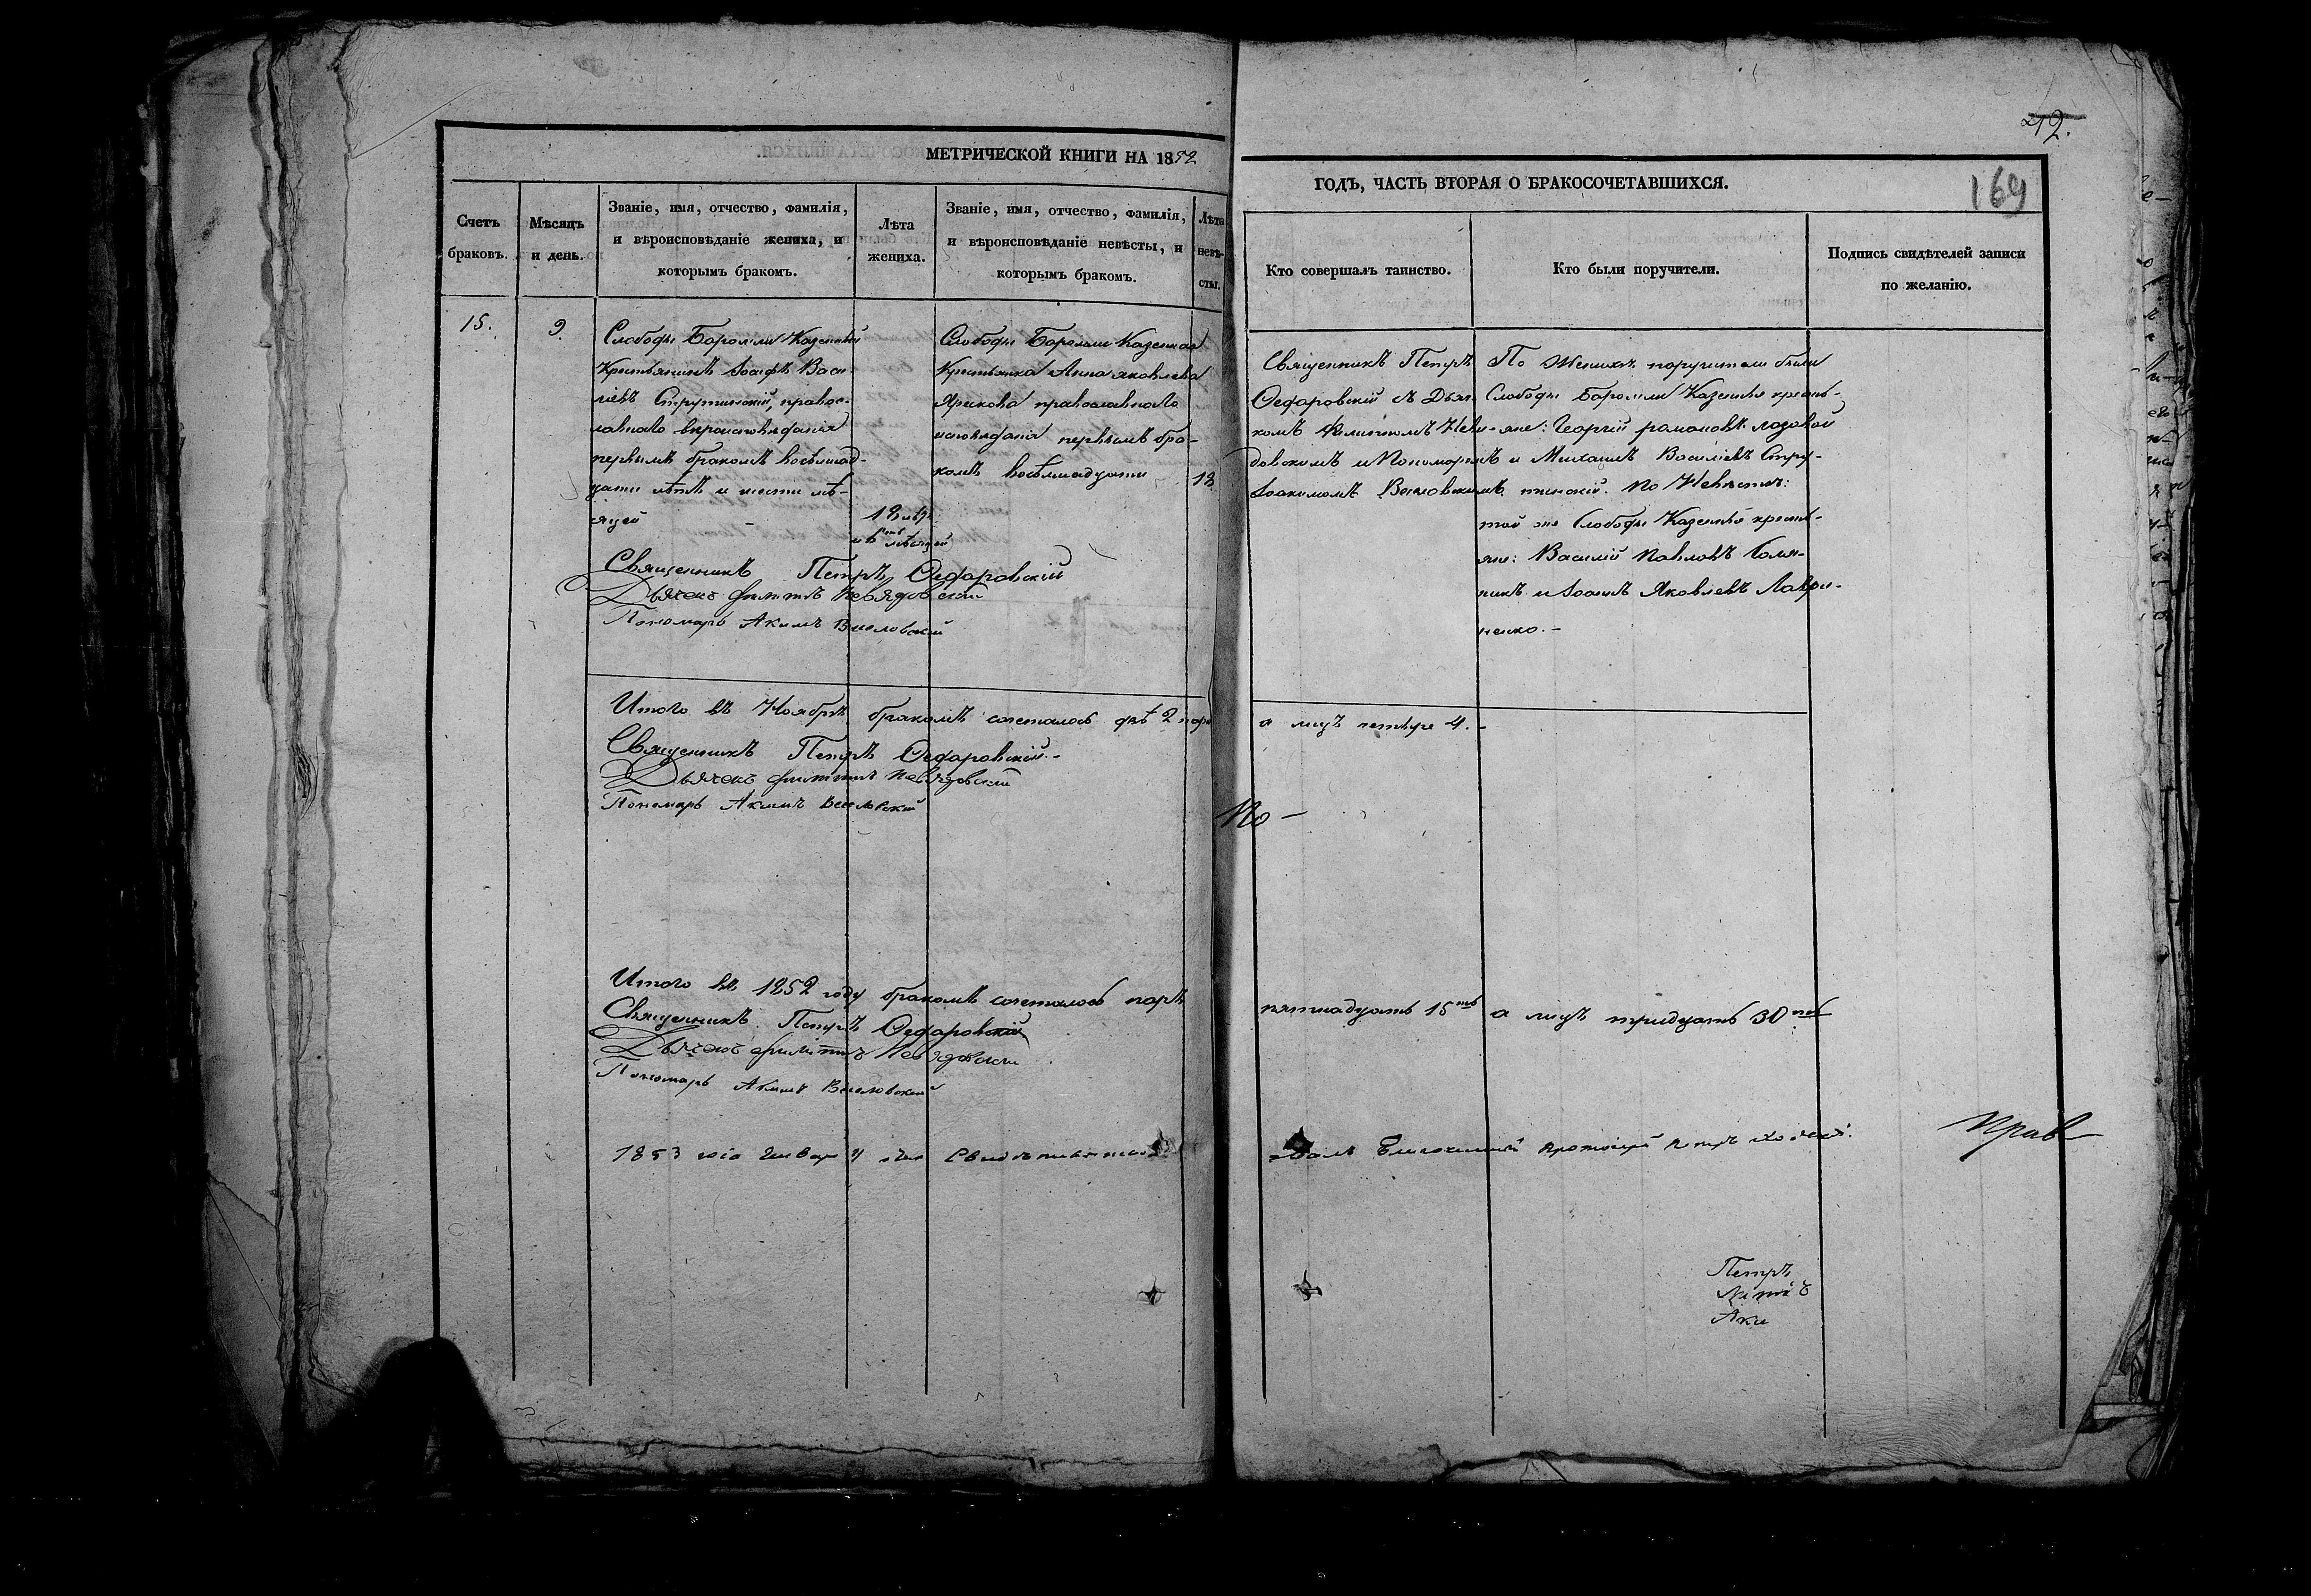 42.
169
МЕТРИЧЕСКОЙ КНИГИ НА 1852
ГОДЪ, ЧАСТЬ ВТОРАЯ О БРАКОСОЧЕТАВШИХСЯ.
Счетъ
браковъ.
Мѣсяцъ
и день.
Званіе, имя, отчество, фамилія,
и вѣроисповѣданіе жениха, и
которымъ бракомъ.
Лѣта
жениха.
Званіе, имя, отчество, фамилія,
и вѣроисповѣданіе невѣсты, и
которымъ бракомъ.
Лѣта
невѣ-
сты.
Кто совершалъ таинство.
Кто были поручители.
Подпись свидѣтелей записи
по желанію.
15.
9
Слободы Боромли Казенный
Крестьянинъ Іосифъ Васи
ліевъ Струтинскій, правос-
лавнаго вѣроисповѣданія
первымъ бракомъ восѣмнад-
цати лѣтъ и шести мѣ-
сяцей
18 лѣтъ
и 6 мѣсяцей
Слободы Боромли Казенная
Крестьянка Анна Яковлева
православнаго
исповѣданія первымъ бра-
комъ восѣмнадцати
18
Священникъ Петръ Ѳедоровскій
Дьячекъ Филиппъ Невядовскій
Пономарь Акимъ Висловскій
Священникъ Петръ
Ѳедоровскій съ Дьяч
комъ Филиппомъ Невя-
довскимъ и Пономаремъ
Іоакимомъ Висловскимъ
По Женихѣ поручители были
Слободы Боромли Казенные кресть-
яне: Георгій Романовъ Лозовой
и Михаилъ Василіевъ Стру-
тинскій. По Невѣстѣ:
той же Слободы Казенные кресть-
яне: Василій Павловъ
и Іоаннъ Яковлевъ Лаври-
ненко.-
Итого въ Ноябрѣ бракомъ сочеталось двѣ 2 пары а лицъ четыре 4.-
Священникъ Петръ Ѳедоровскій.-
Дьячекъ Филиппъ Невядовскій
Пономарь Акимъ Висловскій
По-
Итого въ 1852 году бракомъ сочеталось паръ пятнадцать 15ть а лицъ тридцать 30ть
Священникъ Петръ Ѳедоровскій
Дьячекъ Филиппъ Невядовскій
Пономарь Акимъ Висловскій
1853 года Генваря 4 дня Свидѣтельство-
валъ Благочинный Протоіерей Петръ
Прав-
Петръ
Аки